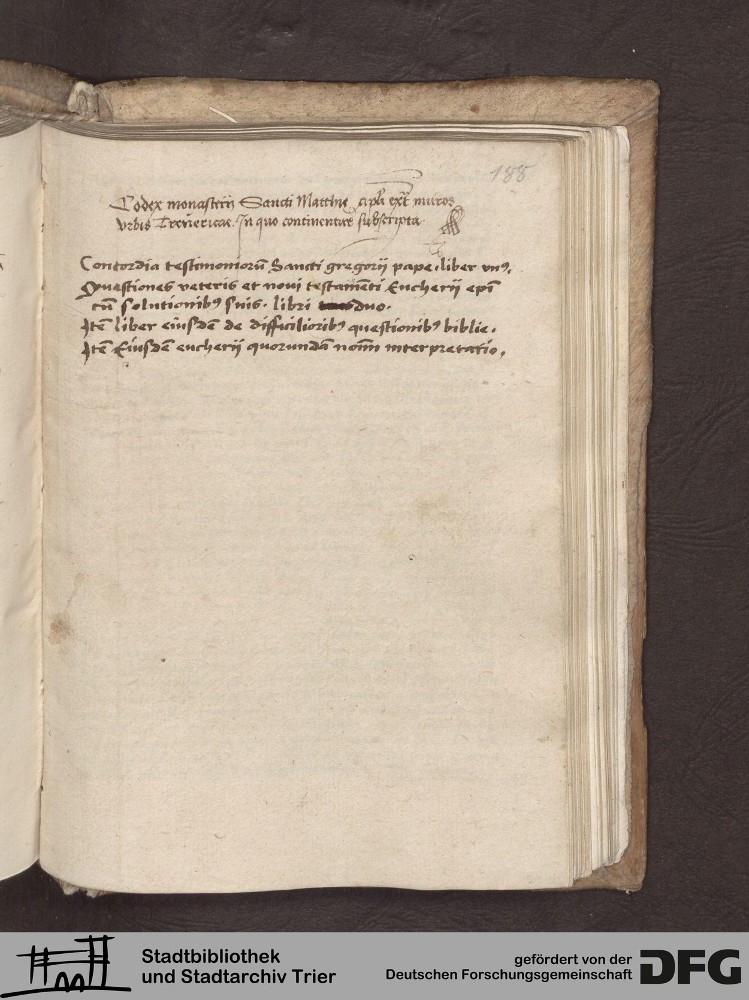 188
Codex monasterij Sancti Matthie apłi ext̃ muros
vrbis Treuericae. In quo continentur subscripta
Concordia testimoniorū Sancti gregorij pape. liber vnꝰ.
Questiones veteris et noui testamēti Eucherij epī
cū solutionibꝰ suis. libri duo.
Itē liber eiusdē de difficilioribꝰ questionibꝰ biblie.
Itē Eiusdē eucherij quorundā noīm interpretatio.
Stadtbibliothek
und Stadtarchiv Trier
gefördert von der
Deutschen Forschungsgemeinschaft
DFG